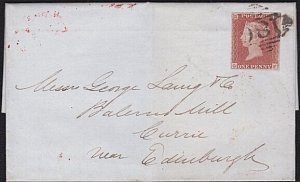 POSTAGE
ONE PENNY
Messrs George Laing & Co
Balerno Mill
Currie
near Edinburgh